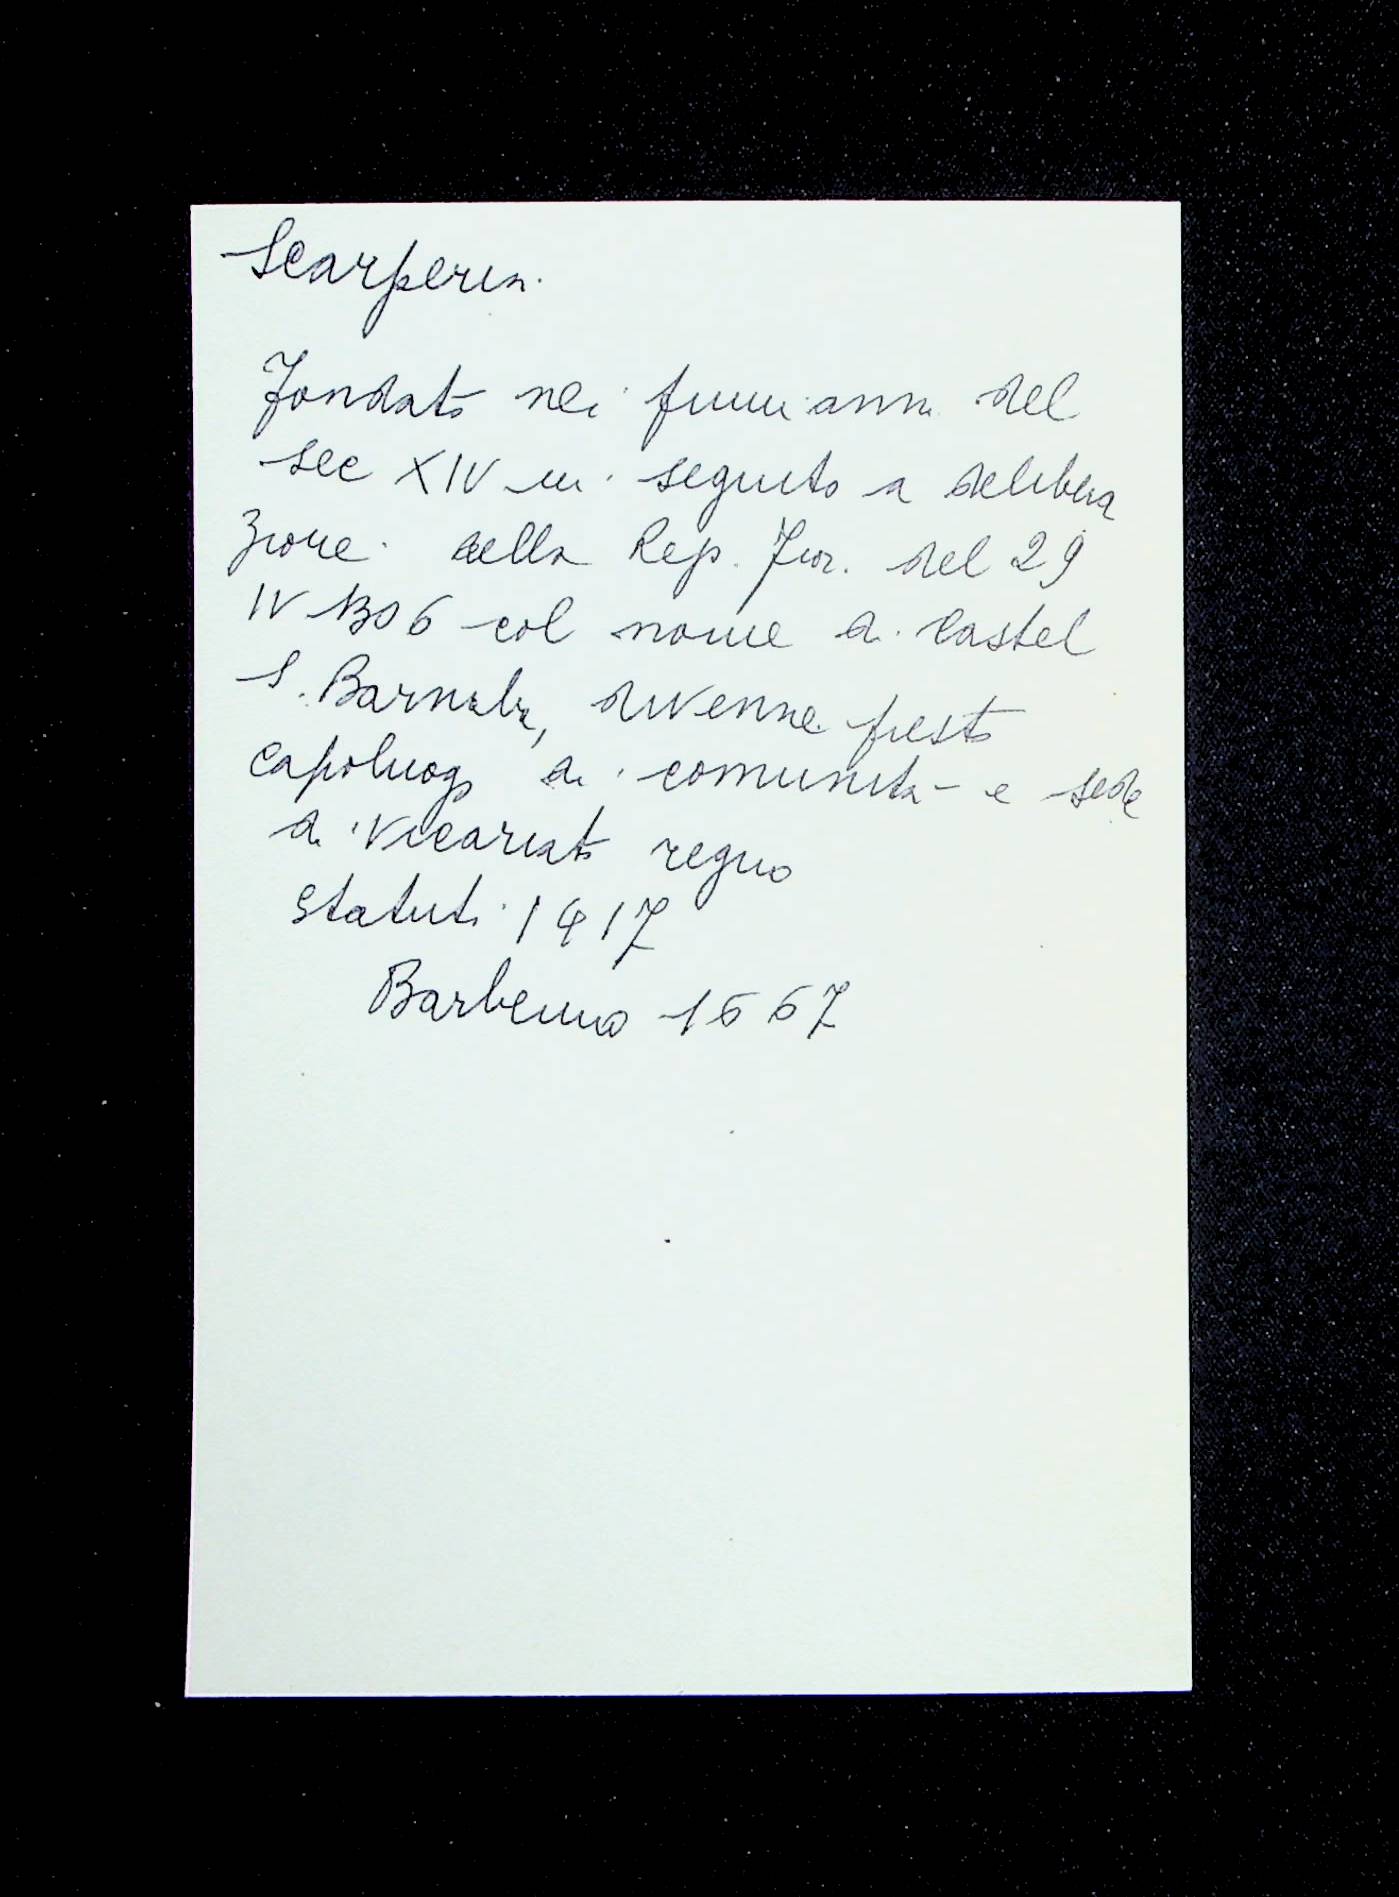 Scarperia
Fondato nei primi anni del
sec XIV in seguito a delibera
zione della Rep. Fior. del 29
IV 1306 col nome di Castel
S. Barnaba, divenne presto
capoluogo di comunità e sede
di vicariato
statuti 1417
Barberino 1667